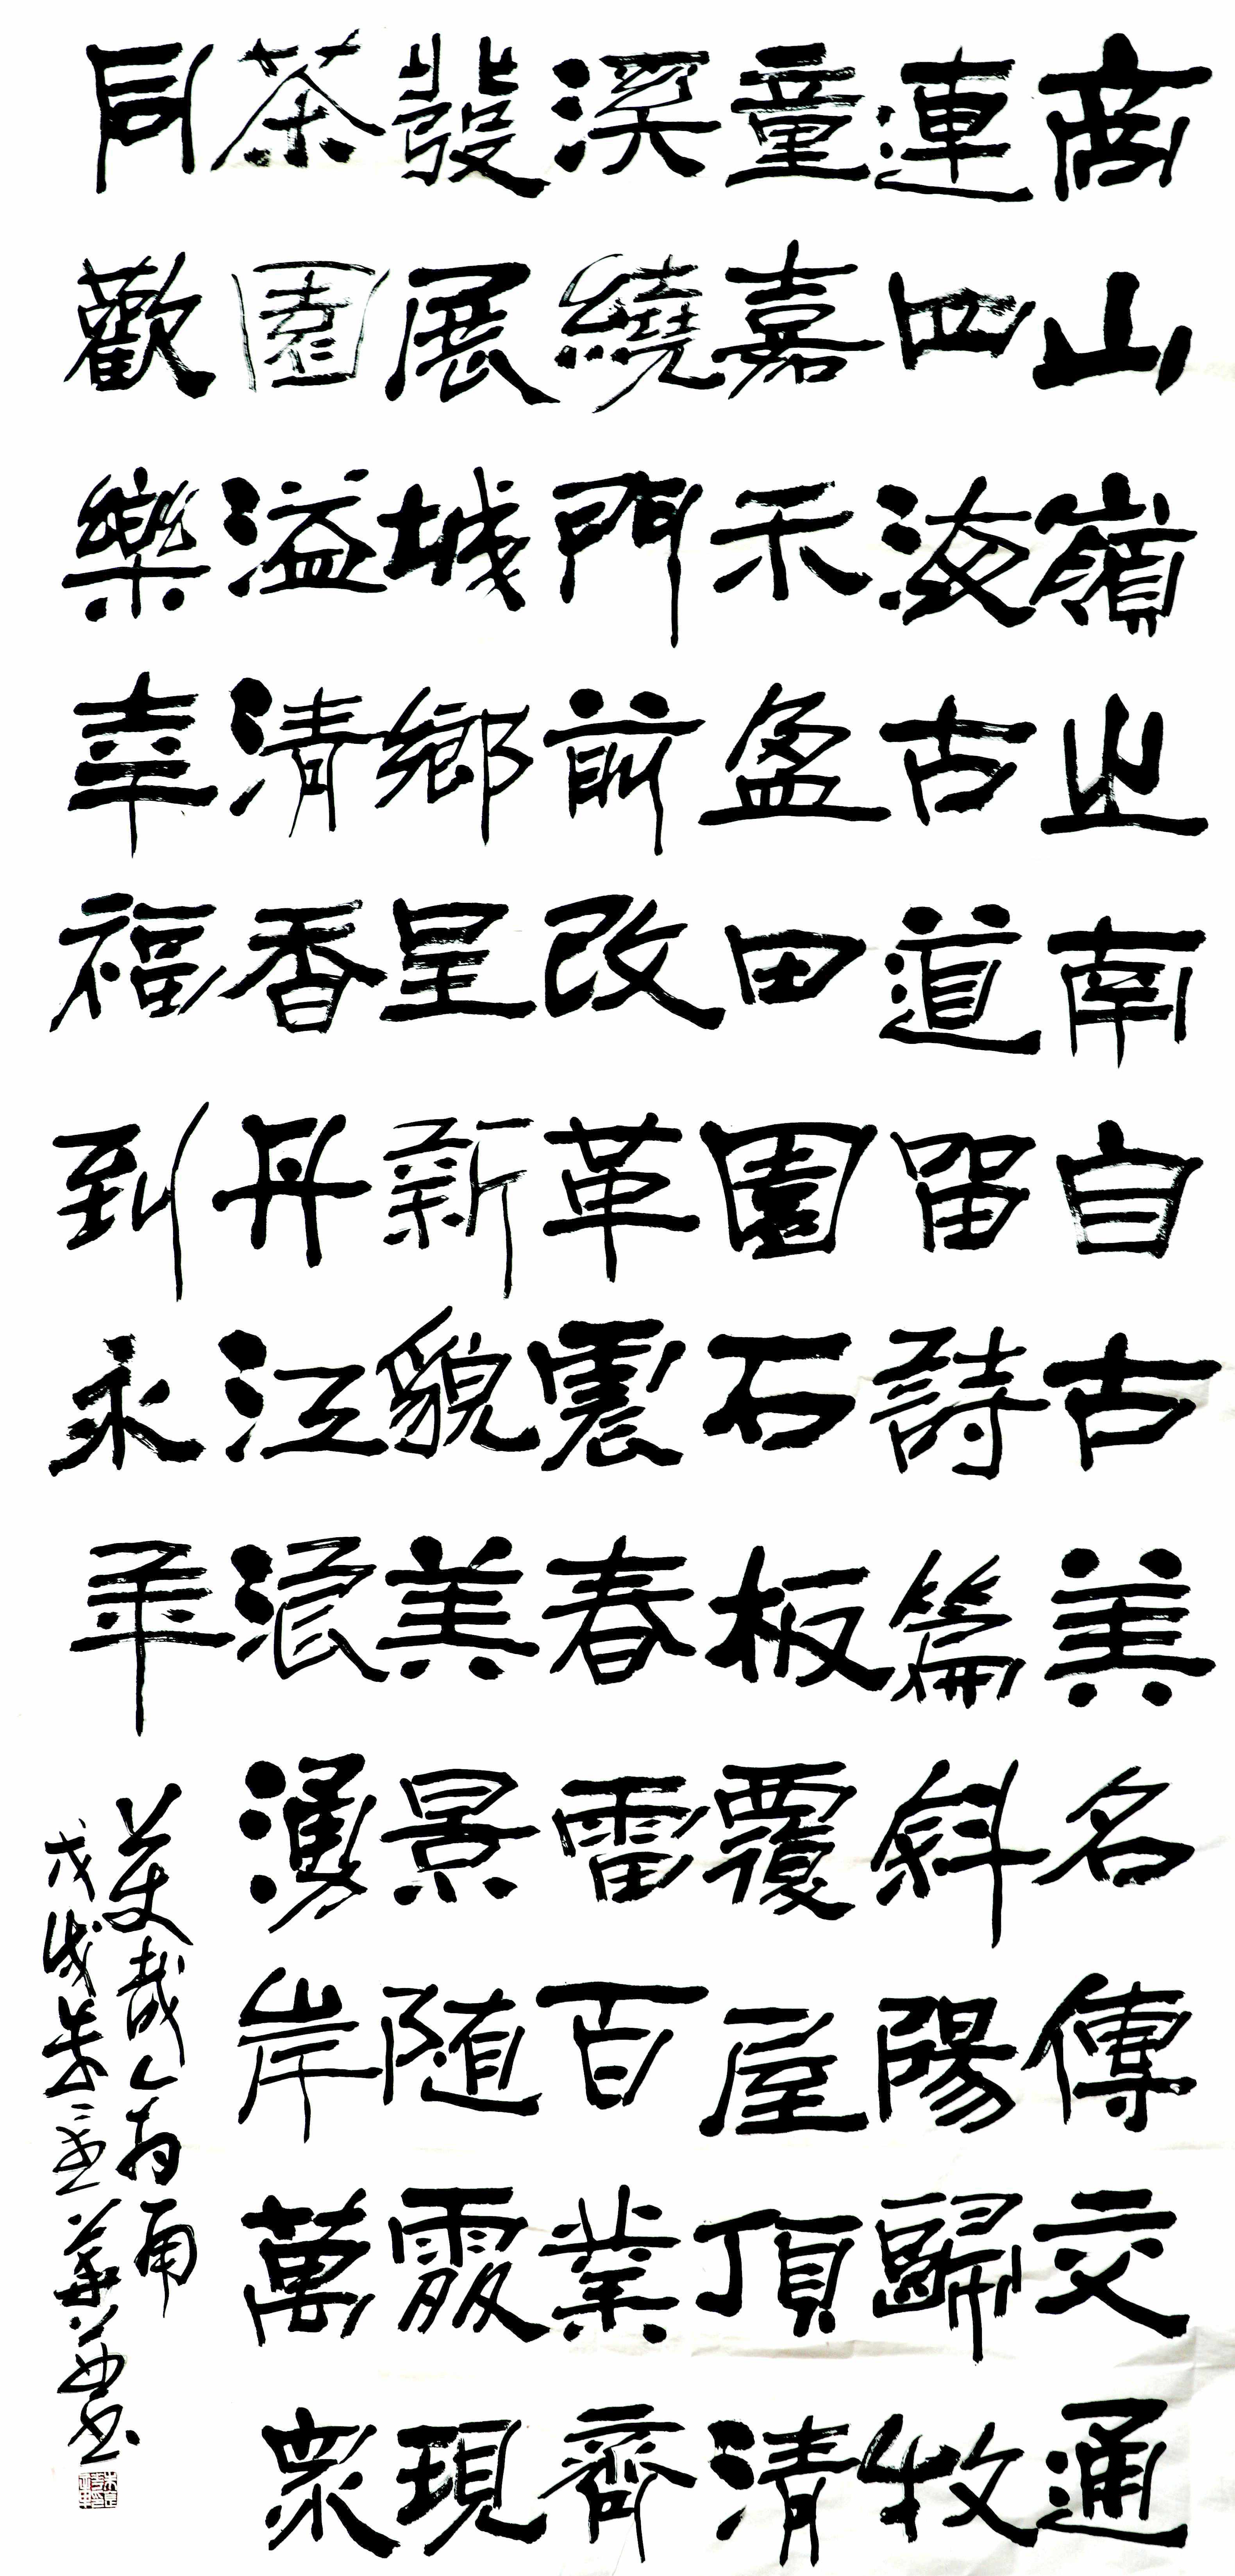 商山嶺之南自古美名傳交通
連四海古道留詩篇斜陽歸牧
童嘉禾盈田園石板覆屋頂清
溪繞門前改革震春雷百業齊
發展城鄉呈新貌美景随霞現
茶園溢清香丹江浪湧岸萬衆
同歡樂幸福到永年
戊戌